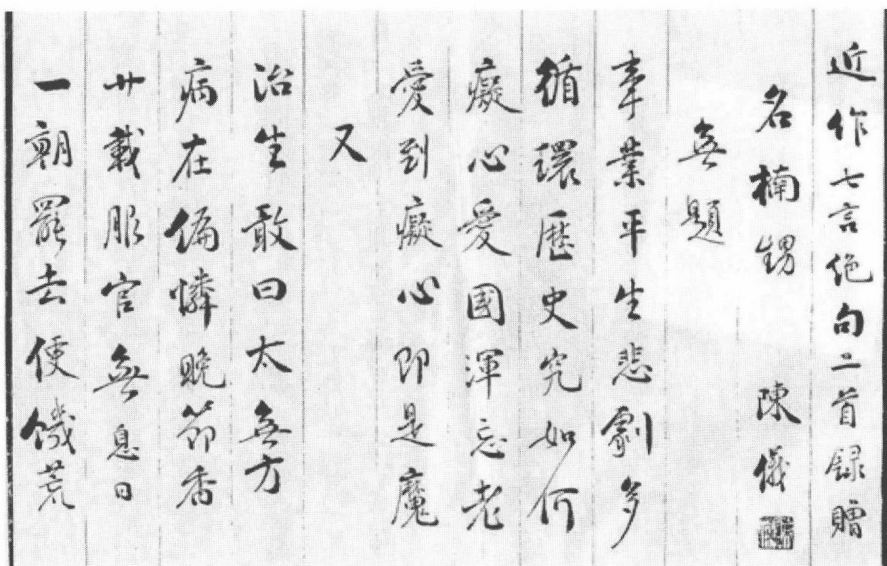 近作七言絶句二首録贈
名楠甥 陳儀
無題
事業平生悲劇多
循環歷史究如何
癡心愛國渾忘老
愛到癡心即是魔
又
治生敢曰太無方
病在偏憐晚節香
廿載服官無息日
一朝罷去便饑荒